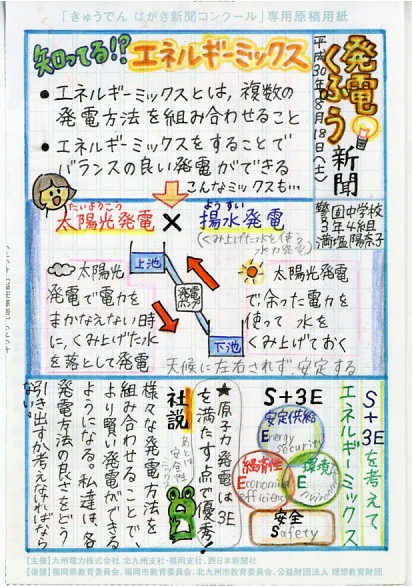 「きゅうでん はがき新聞コンクール」専用原稿用紙
発電くふう新聞
平成30年8月18日(土)
警固中学校
3年4組
満塩陽奈子
知ってる!?エネルギーミックス
• エネルギーミックスとは,複数の
発電方法を組み合わせること
• エネルギーミックスをすることで
バランスの良い発電ができる
こんなミックスも…
たいようこう
太陽光発電
×
ようすい
揚水発電
(くみ上げた水を使う
水力発電)
太陽光
発電で電力を
まかなえない時
に,くみ上げた水
を落として発電
上池
発電
ポンプ
下池
太陽光発電
で余った電力を
使って 水を
くみ上げておく
天候に左右されず,安定する
S+3Eを考えて
エネルギーミックス
S+3E
安定供給
Energy
security
経済性
Economical
efficiency
環境
Environment
安全
Safety
★原子力発電は3E
を満たす点で優秀!
あとは
安全性
社説
様々な発電方法を
組み合わせることで、
より賢い発電ができる
ようになる。私達は、各
発電方法の良さをどう
引き出すか考えなければならない。
【主催】九州電力株式会社 北九州支社・福岡支社、西日本新聞社
【後援】福岡県教育委員会、福岡市教育委員会、北九州市教育委員会、公益財団法人 理想教育財団